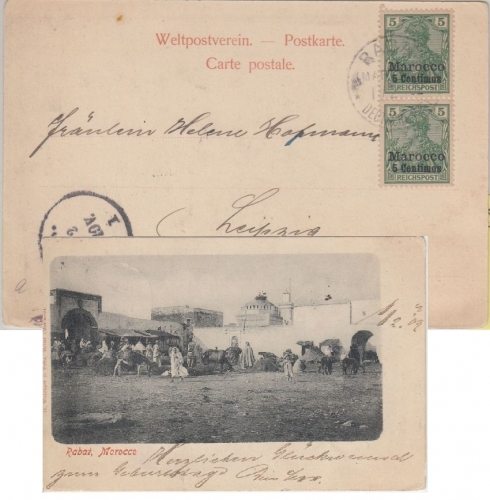 Weltpostverein. — Postkarte.
Carte postale.
5 5
Marocco
5 Centimos
REICHSPOST
5 5
Marocco
5 Centimos
REICHSPOST
Fräulein Helene Hofmann
Leipzig
Rabat, Morocco
Herzlichen Glückwunsch
zum Geburtstag